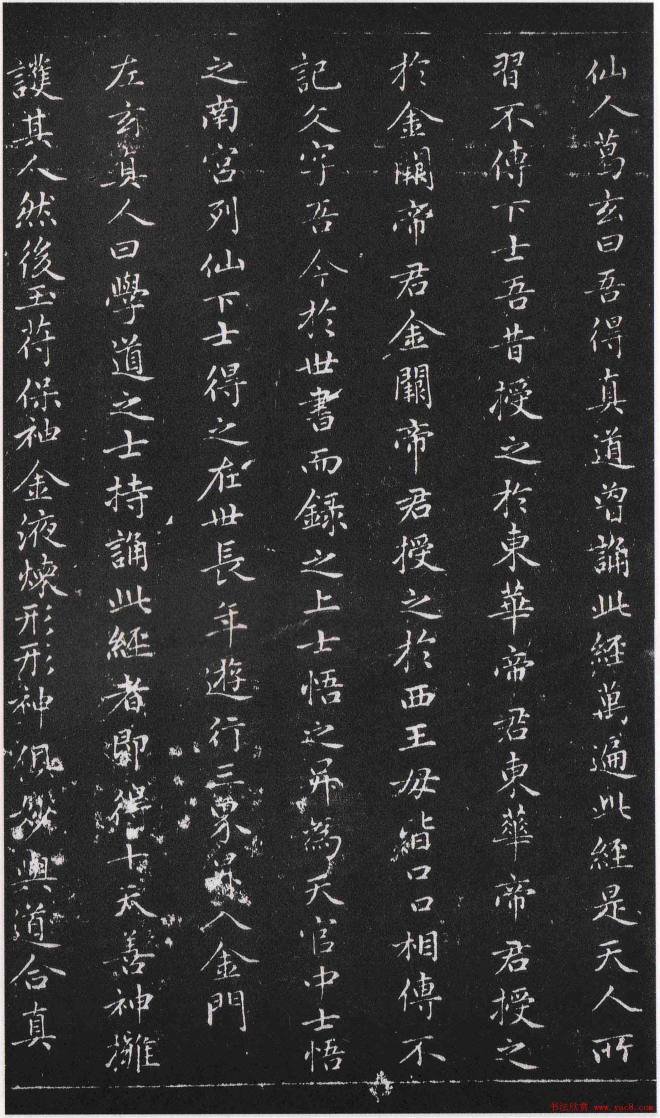 仙人葛玄曰吾得真道曾誦此經萬遍此經是天人所
習不傳下士吾昔授之於東華帝君東華帝君授之
於金闕帝君金闕帝君授之於西王母皆口口相傳不
記文字吾今於世書而錄之上士悟之昇為天官中士悟
之南宮列仙下士得之在世長年遊行三界昇入金門
左玄真人曰學道之士持誦此經者即得十天善神擁
護其人然後玉符保神金液煉形形神俱妙與道合真
书法欣赏 www.yac8.com